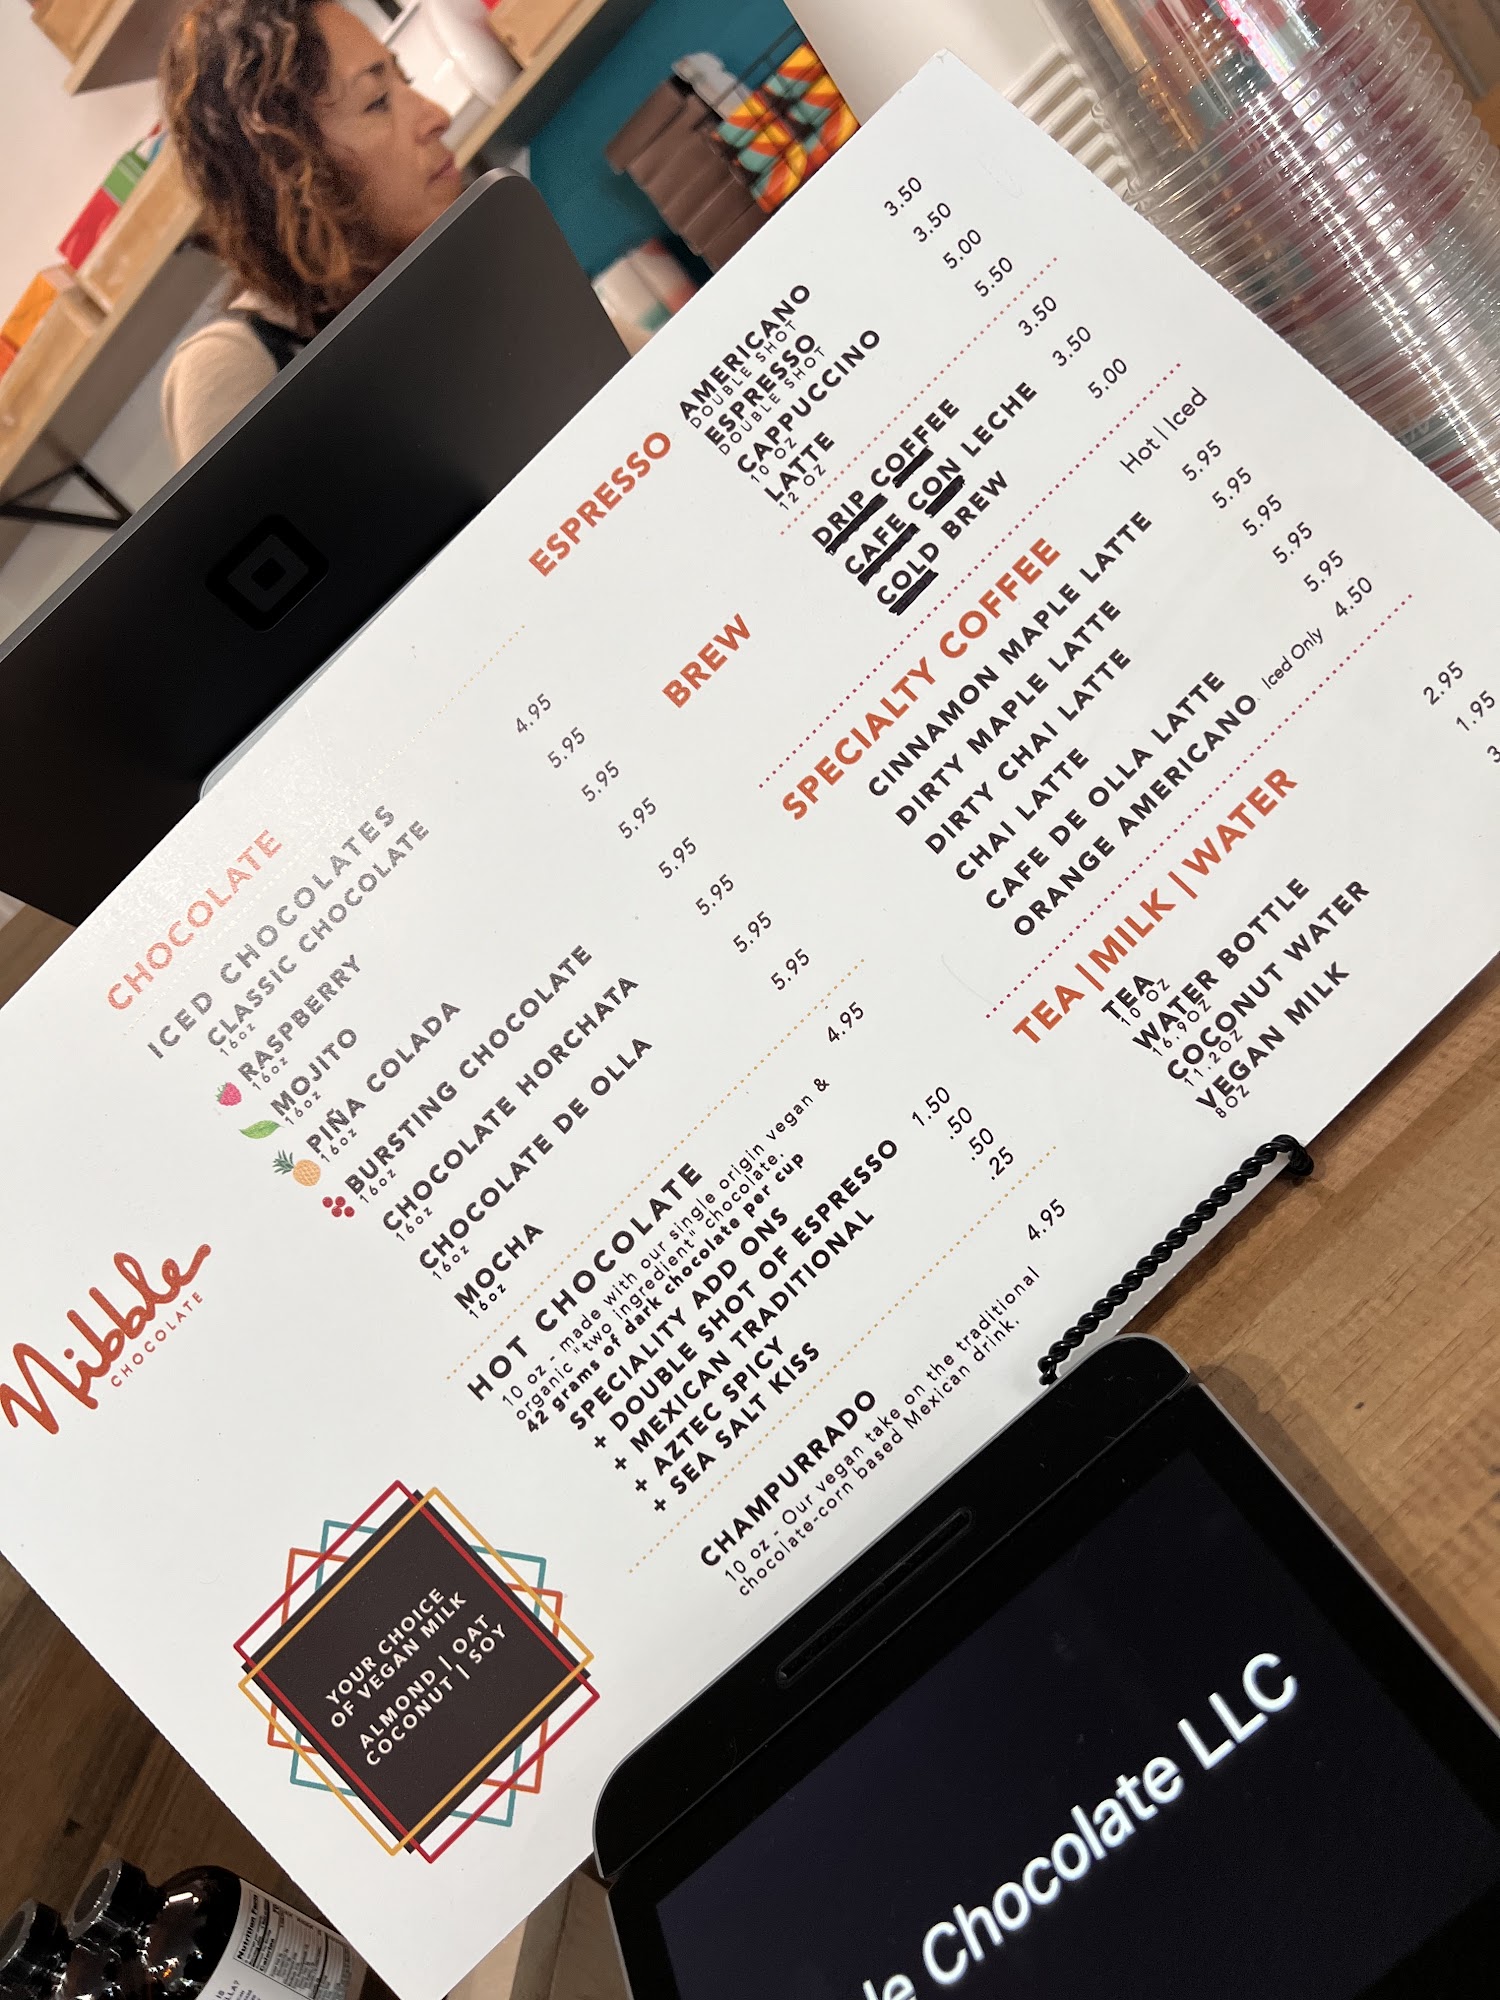 Nibble
CHOCOLATE
CHOCOLATE
ICED CHOCOLATES
CLASSIC CHOCOLATE 4.95
16oz
RASPBERRY 5.95
16oz
MOJITO 5.95
16oz
PIÑA COLADA 5.95
16oz
BURSTING CHOCOLATE 5.95
16oz
CHOCOLATE HORCHATA 5.95
16oz
CHOCOLATE DE OLLA 5.95
16oz
MOCHA 5.95
16oz
HOT CHOCOLATE 4.95
10 oz - made with our single origin vegan &
organic "two ingredient" chocolate.
42 grams of dark chocolate per cup
SPECIALITY ADD ONS
+ DOUBLE SHOT OF ESPRESSO 1.50
+ MEXICAN TRADITIONAL .50
+ AZTEC SPICY .50
+ SEA SALT KISS .25
CHAMPURRADO 4.95
10 oz - Our vegan take on the traditional
chocolate-corn based Mexican drink.
YOUR CHOICE
OF VEGAN MILK
ALMOND | OAT
COCONUT | SOY
ESPRESSO
AMERICANO 3.50
DOUBLE SHOT
ESPRESSO 3.50
DOUBLE SHOT
CAPPUCCINO 5.00
10 OZ
LATTE 5.50
12 OZ
BREW
DRIP COFFEE 3.50
CAFE CON LECHE 3.50
COLD BREW 5.00
SPECIALTY COFFEE Hot | Iced
CINNAMON MAPLE LATTE 5.95
DIRTY MAPLE LATTE 5.95
DIRTY CHAI LATTE 5.95
CHAI LATTE 5.95
CAFE DE OLLA LATTE 5.95
ORANGE AMERICANO Iced Only 4.50
TEA | MILK | WATER
TEA 2.95
10 OZ
WATER BOTTLE 1.95
16.9OZ
COCONUT WATER 3
11.2OZ
VEGAN MILK
8OZ
le Chocolate LLC
Nutrition Facts
Calories